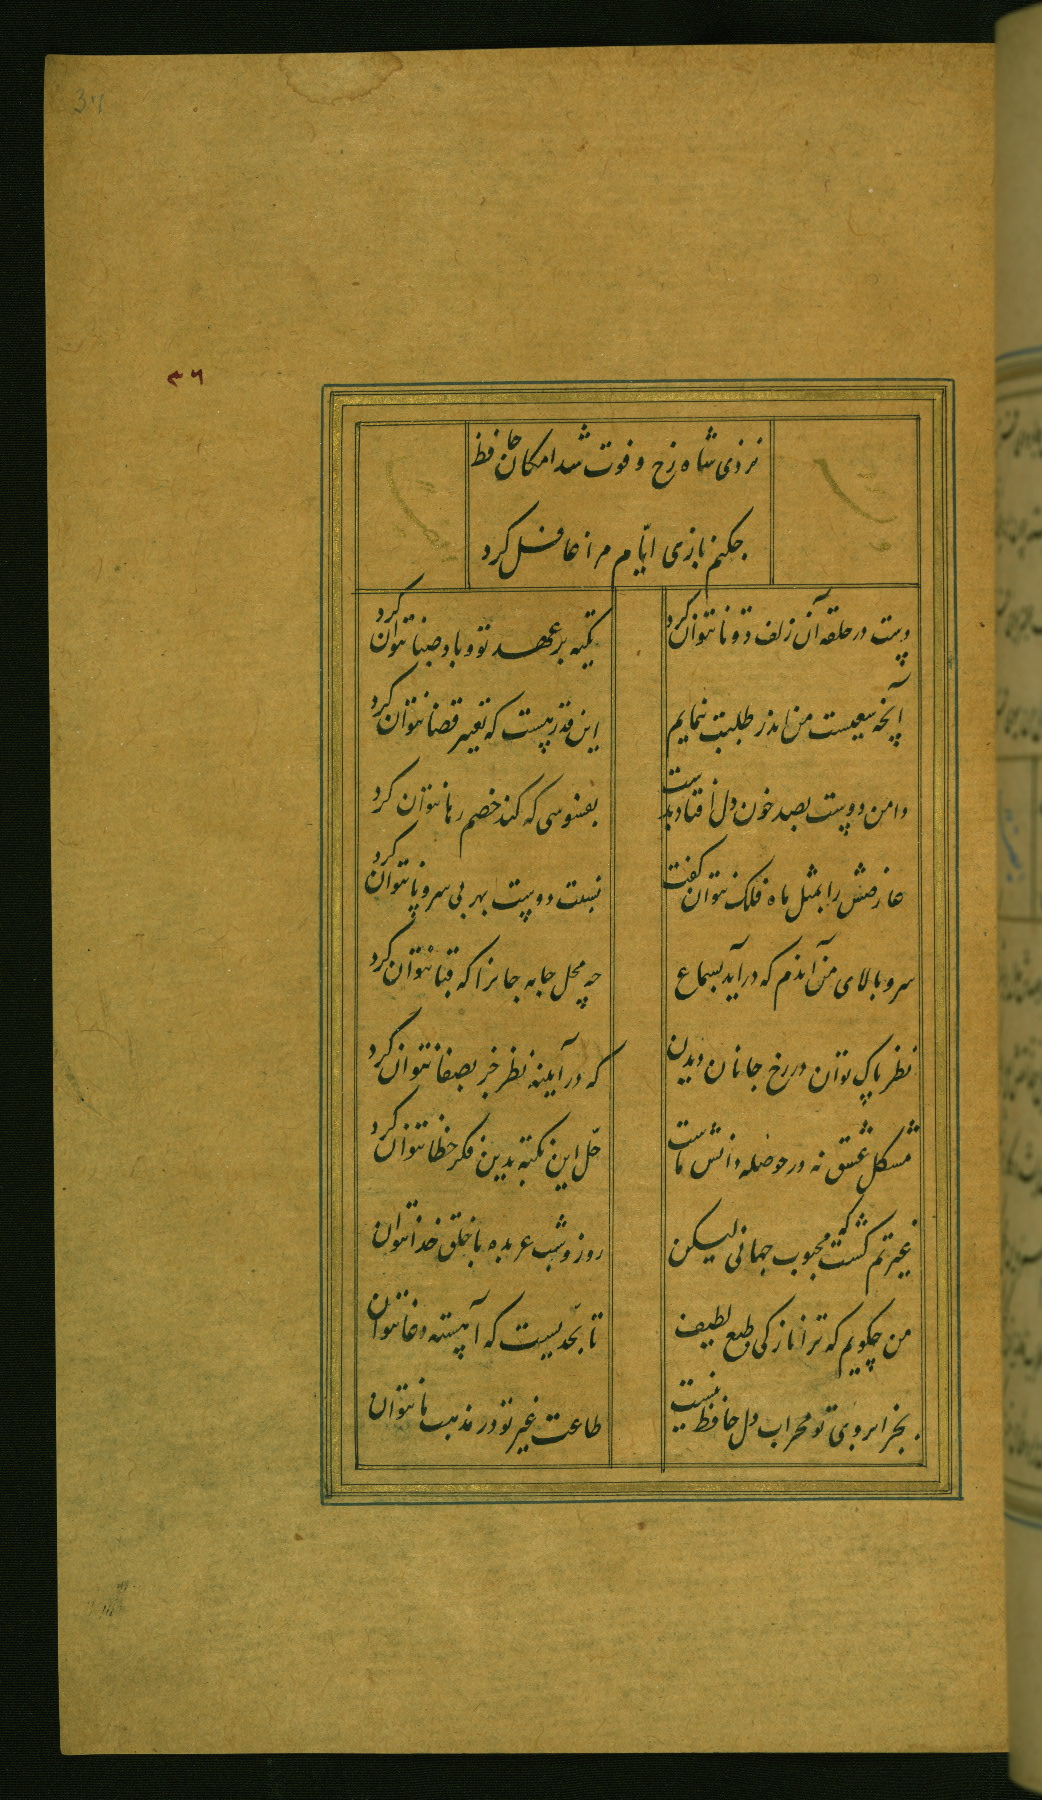 37
۳۶
نزدی شاه رخ و فوت شد امکان حافظ
چکنم بازی ایام مرا غافل کرد
دست در حلقه آن زلف دوتا نتوان کرد
تکیه بر عهد تو و باد صبا نتوان کرد
آنچه سعیست من اندر طلبت بنمایم
این قدر هست که تغییر قضا نتوان کرد
دامن دوست بصد خون دل افتاد بدست
بفسوسی که کند خصم رها نتوان کرد
عارضش را بمثل ماه فلک نتوان گفت
نسبت دوست بهر بی سر و پا نتوان کرد
سرو بالای من آندم که درآید بسماع
چه محل جامه جانرا که قبا نتوان کرد
نظر پاک توان در رخ جانان دیدن
که در آیینه نظر جز بصفا نتوان کرد
مشکل عشق نه در حوصله دانش ماست
حل این نکته بدین فکر خطا نتوان کرد
غیرتم گشت که محبوب جهانی لیکن
روز و شب عربده با خلق خدا نتوان
من چکویم که ترا نازکی طبع لطیف
تا بحدیست که آهسته دعا نتوان
بجز ابروی تو محراب دل حافظ نیست
طاعت غیر تو در مذهب ما نتوان